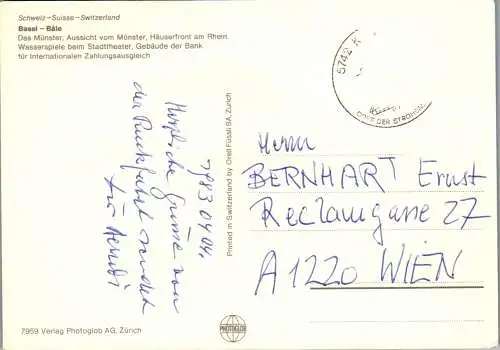 Schweiz–Suisse–Switzerland
Basel – Bâle
Das Münster, Aussicht vom Münster, Häuserfront am Rhein.
Wasserspiele beim Stadttheater, Gebäude der Bank
für Internationalen Zahlungsausgleich
5742 K
DORF DER STROHIN
1983 04 04.
Herzliche Grüsse von
der Rückfahrt sendet
Printed in Switzerland by Orell Füssli SA, Zurich
Herrn
BERNHART Ernst
Reclamgasse 27
A 1220 WIEN
7959 Verlag Photoglob AG, Zürich
PHOTOGLOB